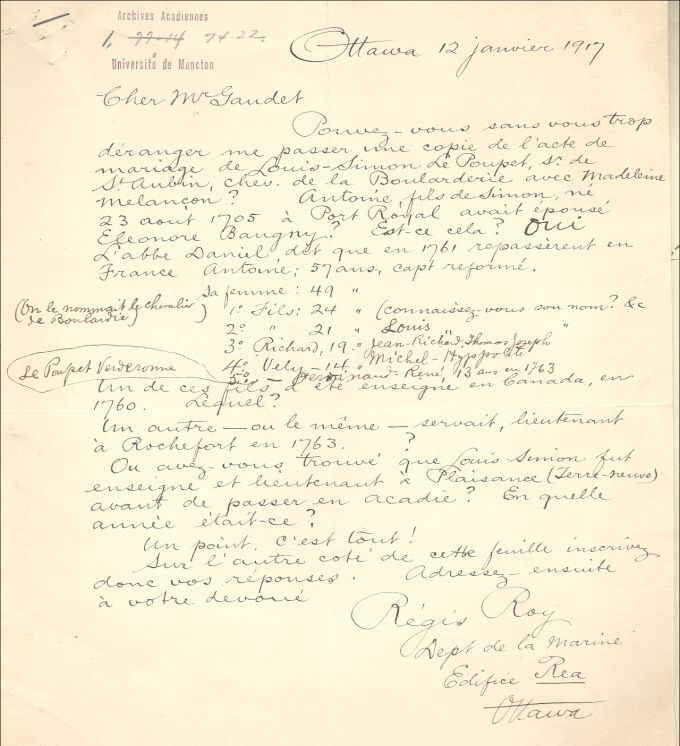 Archives Acadiennes
1, 77-14 74-22.
Université de Moncton
Ottawa 12 janvier 1917
Cher Mr Gaudet
Pouvez-vous sans vous trop
déranger me passer une copie de l'acte de
mariage de Louis-Simon Le Poupet, Sr. de
St Aubin, chev. de la Boularderie avec Madeleine
Melançon? Antoine, fils de Simon, né
23 août 1705 à Port Royal avait épousé
Eleonore Baugny? Est-ce cela? Oui
L'abbé Daniel dit que en 1761 repassèrent en
France Antoine; 57 ans, capt reformé.
Sa femme: 49 "
(On le nommait le chevalier
de Boulardie)
1º Fils: 24 " (connaissez-vous son nom? &c
2º " 21 " Louis " "
3º Richard, 19 - " Jean-Richard-Thomas Joseph
4º Vely - 14. " Michel-Hyppolite
Le Poupet Verderonne
5º - René, 13 ans en 1763
Un de ces fils a été enseigne en Canada, en
1760. Lequel?
Un autre - ou le même - servait, lieutenant
à Rochefort en 1763. ?
Ou avez-vous trouvé que Louis Simon fut
enseigne et lieutenant à Plaisance (Terre-neuve)
avant de passer en acadie? En quelle
année était-ce?
Un point. c'est tout!
Sur l'autre coté de cette feuille inscrivez
donc vos réponses. Adressez-ensuite
à votre devoué
Régis Roy
Dept de la Marine
Edifice Rea
Ottawa